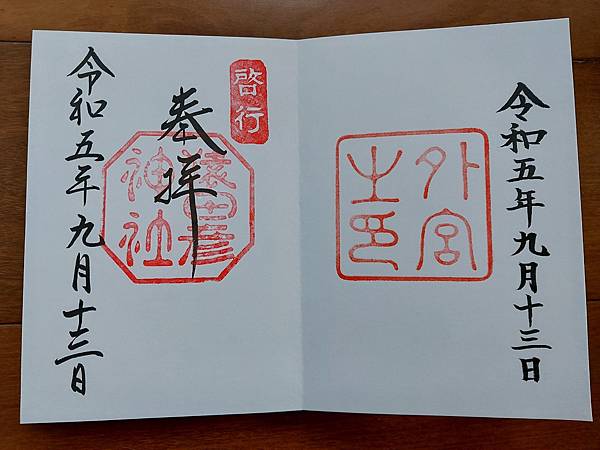 令和五年九月十三日
外宮
之印
啓行
奉拝
猿田彦
神社
令和五年九月十三日